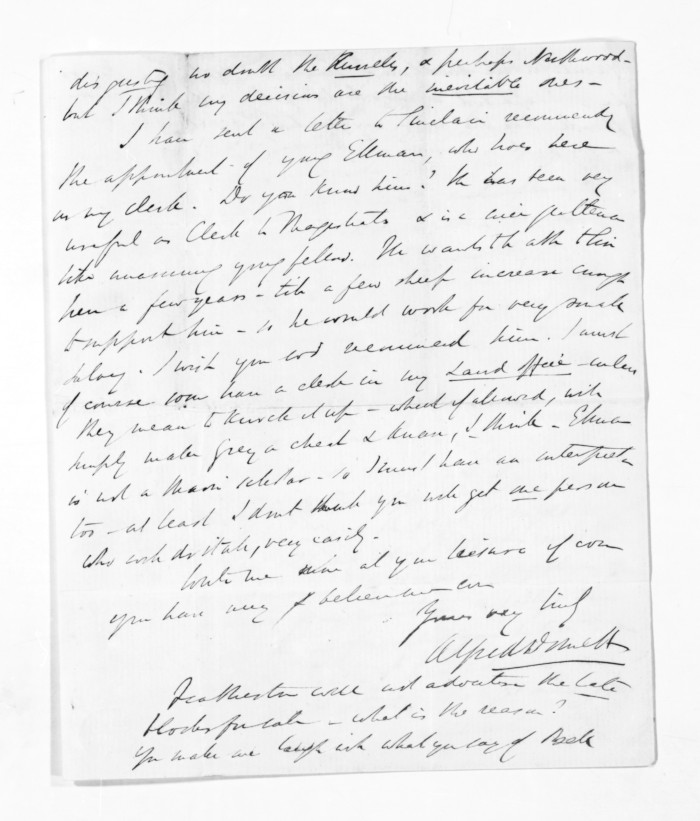 disgusting no doubt the Russells, & perhaps Northwood -
but I think my decisions are the inevitable ones -
I have sent a letter to Sinclair recommending
the appointment of young Ellman, who lives here
as my clerk. Do you know him? He has been very
useful as Clerk to Magistrate & is a nice gentleman
like unassuming young fellow. He wants
here a few years - till a few sheep increase enough
to support him - so he would work for very small
salary. I wish you wod recommend him. I must
of course soon have a clerk in my Land Office - unless
they mean to knock it up - which if allowed, will
simply make Grey a cheat & knave, I think - Ellman
is not a Maori scholar - so I must have an interpreter
too - at least I dont think you will get one person
who wod do it all, very easily.
Write me at your leisure if
you have any & believe me ever
Yours very truly
Alfred Domett
Featherston will not advertise the late
blocks for sale - what is the reason?
You make me laugh with what you say of